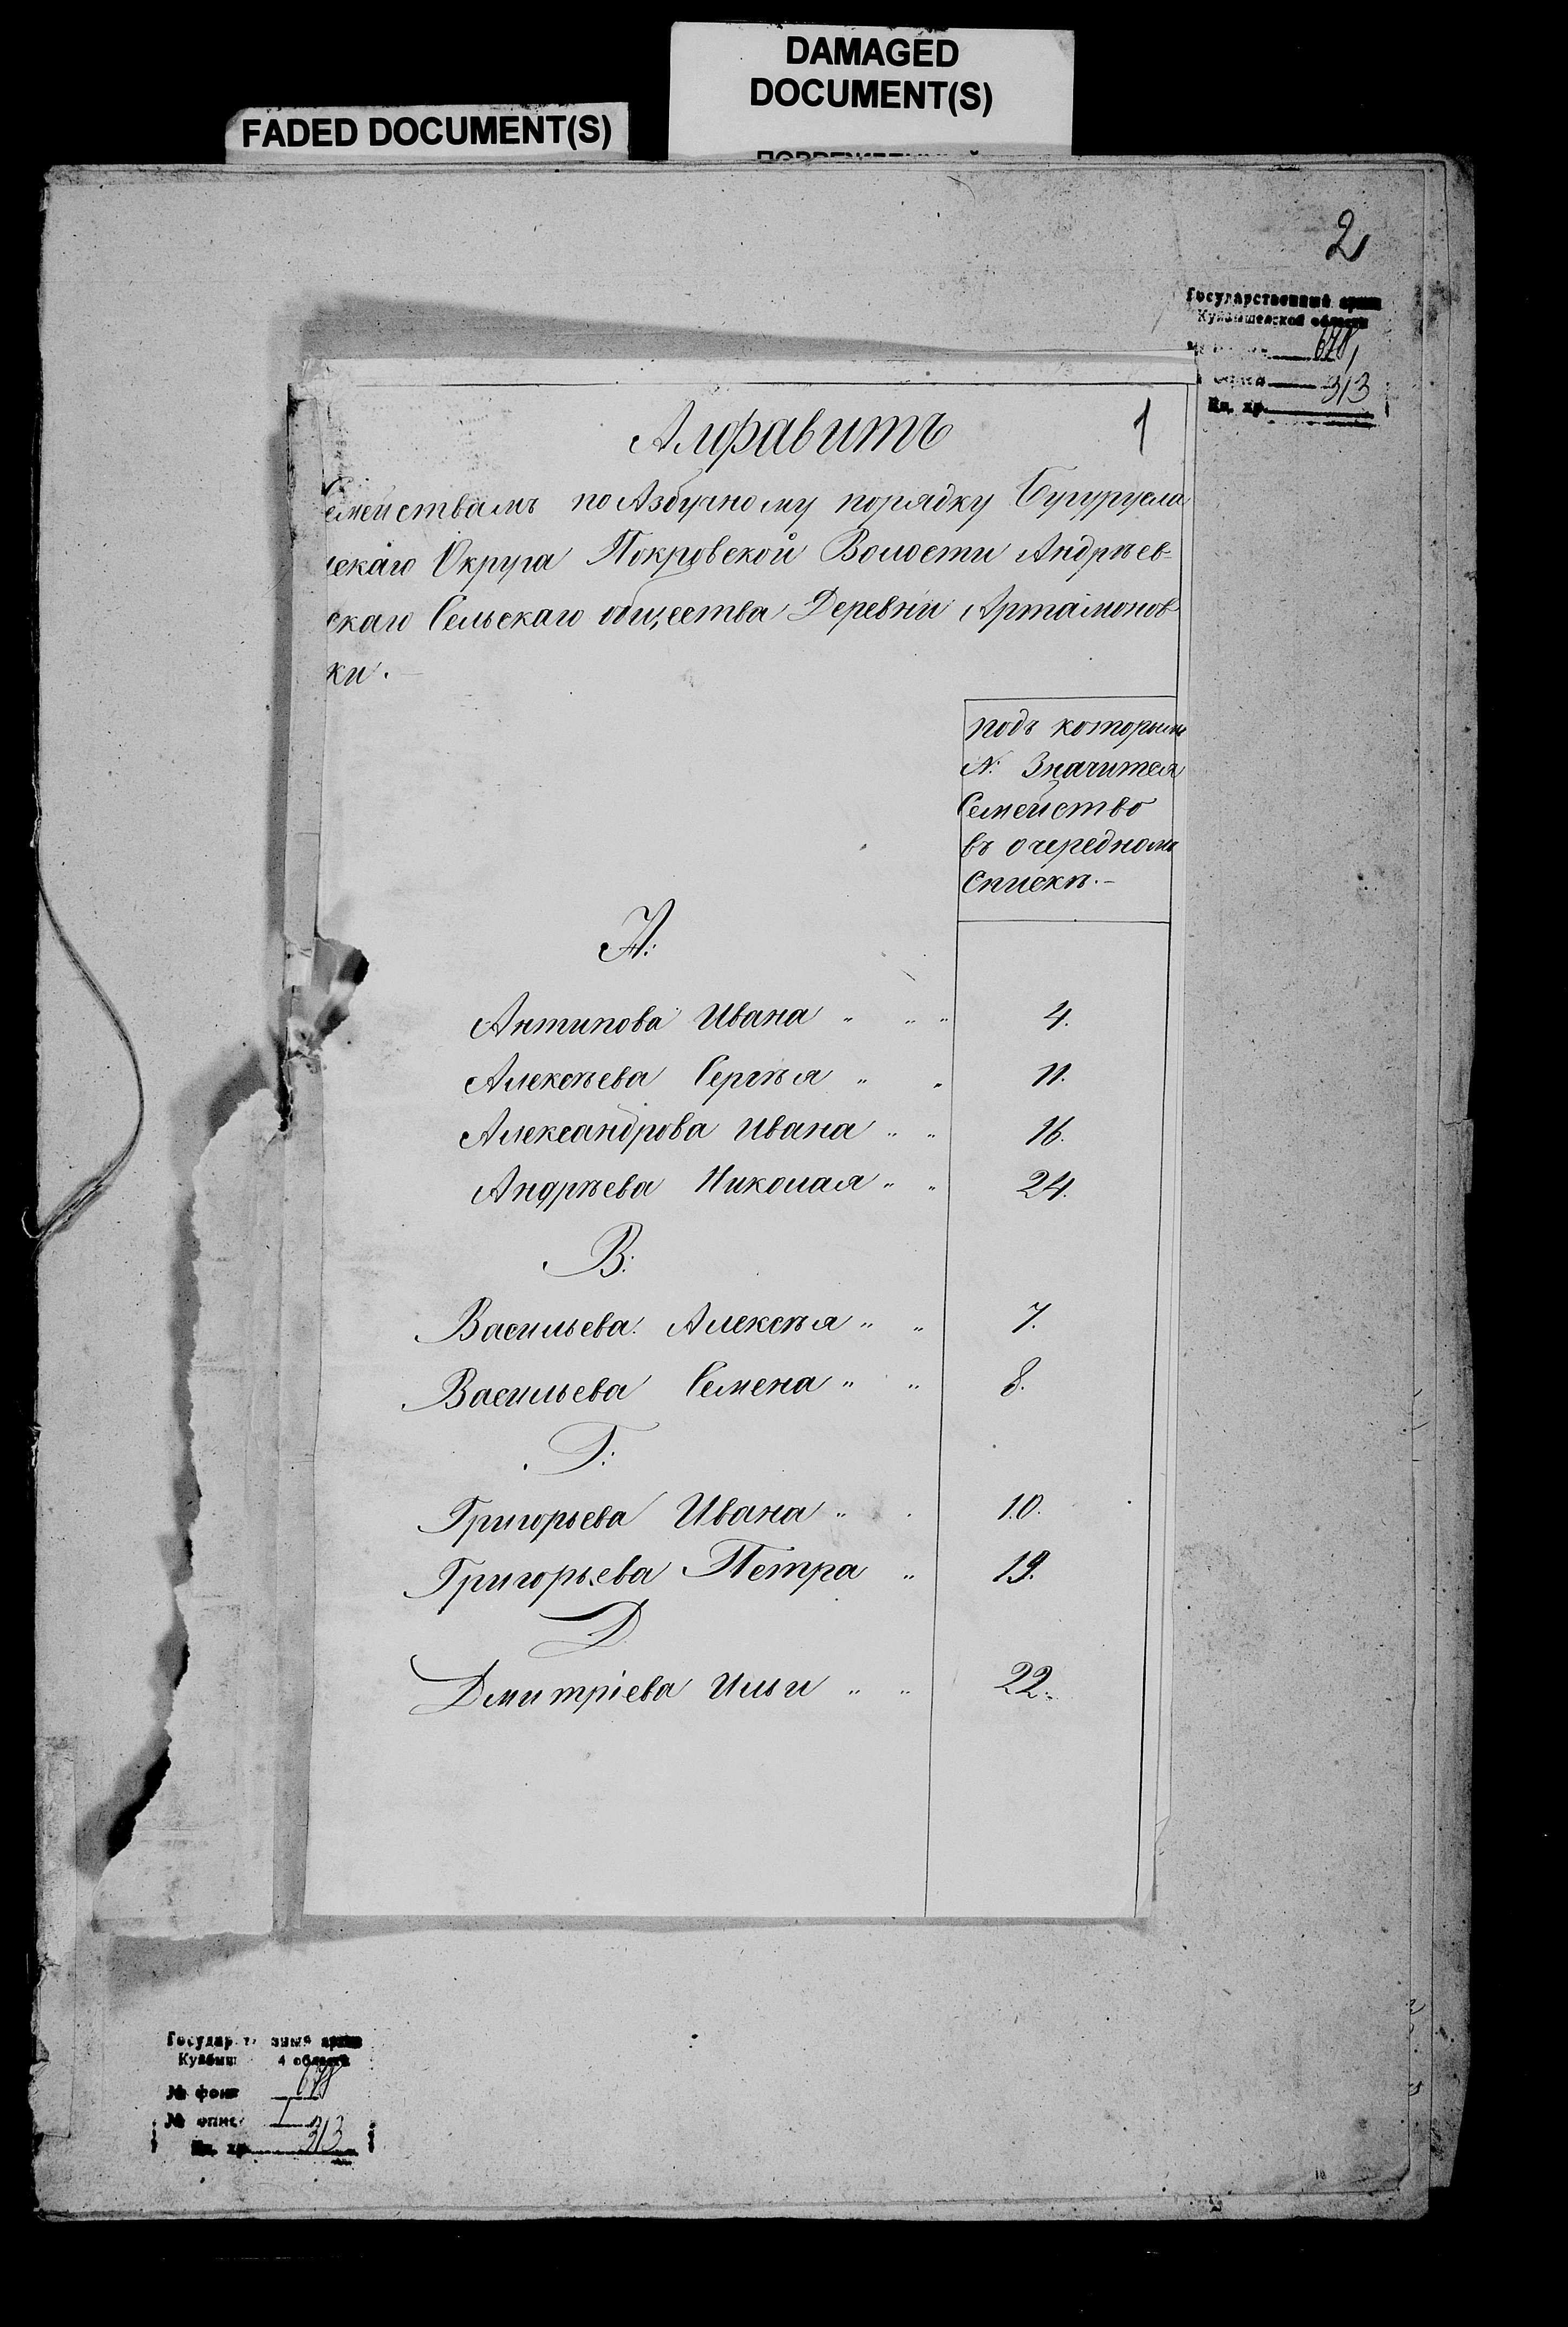 DAMAGED
DOCUMENT(S)
FADED DOCUMENT(S)
2
Государственный архив
Куйбышевской области
678
1
313
Ед. хр.
Алфавитъ
1
Семействамъ по Азбучному порядку Бугурусла
нскаго Округа Покровской Волости Андрѣев-
скаго Сельскаго общества Деревни Артамонов
ки.
подъ которымъ
№: Значится
Семейство
въ очередномъ
Спискѣ.-
А:
Антипова Ивана " " " 4.
Алексѣева Сергѣя " " 11.
Александрова Ивана " " 16.
Андрѣева Николая " " 24.
В:
Васильева Алексѣя " " 7.
Васильева Семена " " 8.
Г:
Григорьева Ивана " 10.
Григорьева Петра " 19.
Д
Дмитріева Ильи " " 22.
Государ зный архив
Куйбыш й области
№ фон 678
№ опис 1
Ед. хр 313